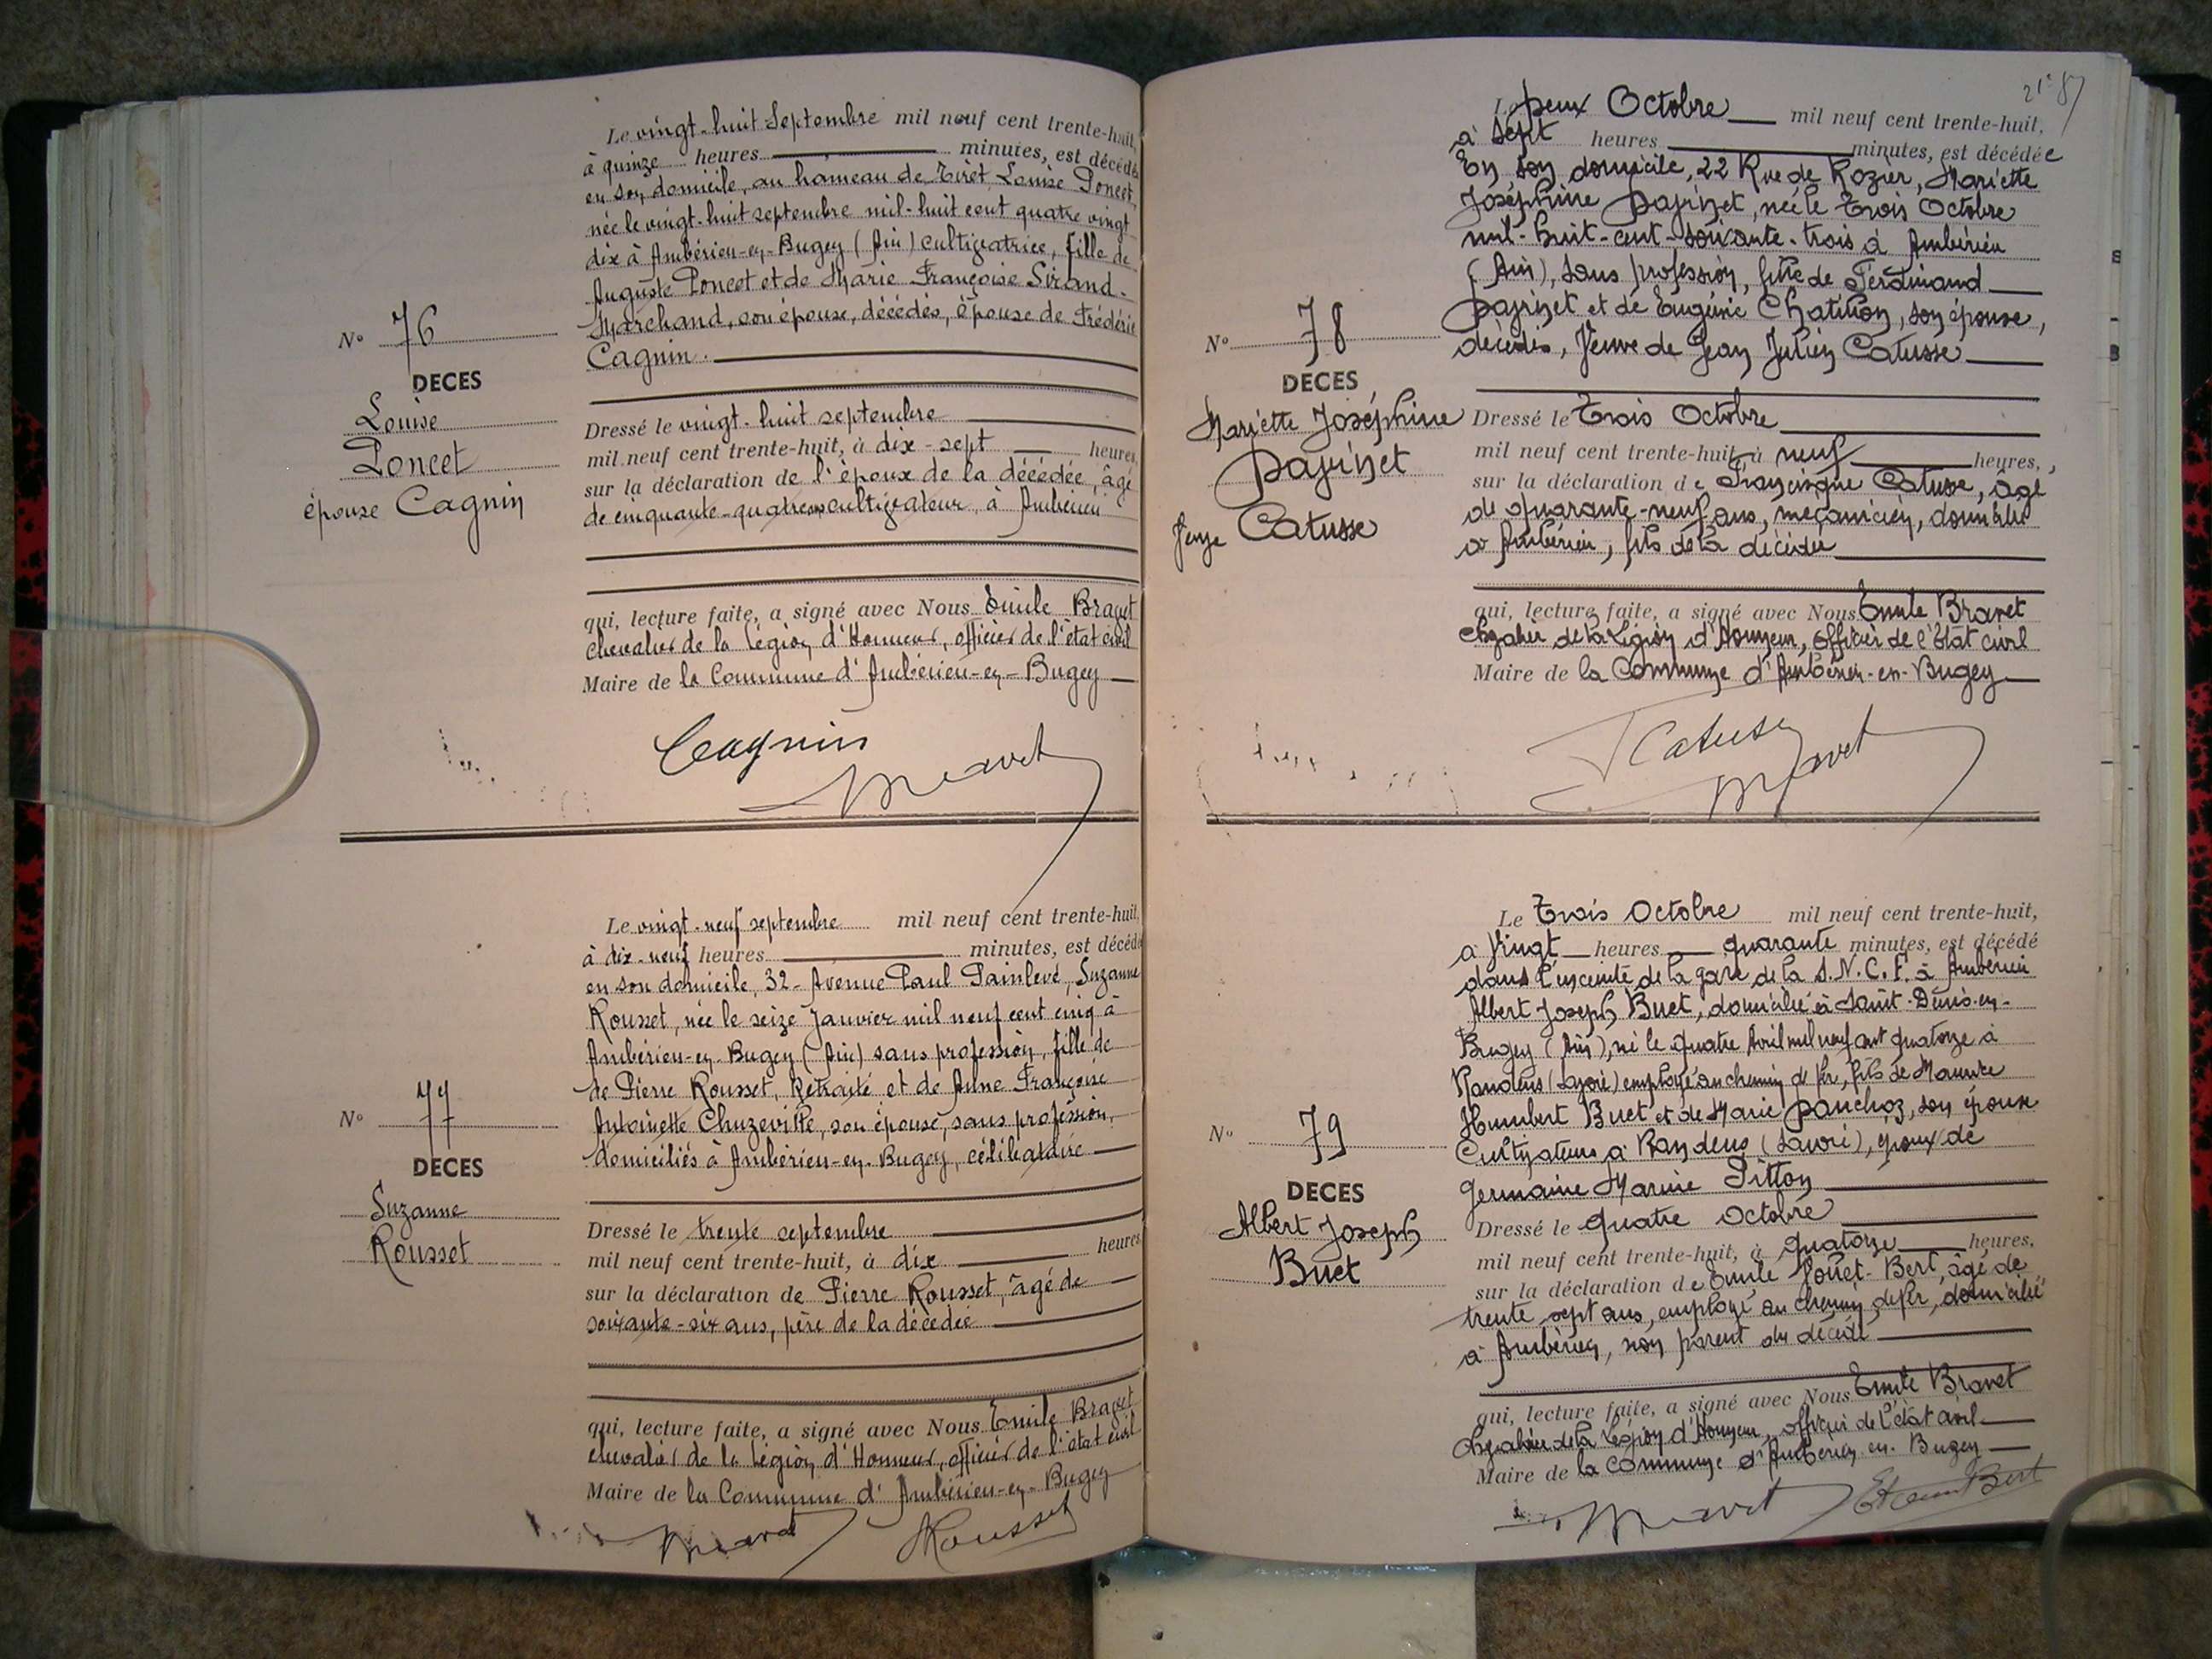 Le vingt-huit Septembre mil neuf cent trente-huit,
à quinze heures minutes, est décédée
en son domicile, au hameau de Tiret, Louise Poncet,
née le vingt-huit septembre mil-huit cent quatre vingt
dix à Ambérieu-en-Bugey (Ain) cultivatrice, fille de
Auguste Poncet et de Marie Françoise Sirand-
Marchand, son épouse, décédés, épouse de Frédéric
Cagnin.
N° 76
DECES
Louise
Poncet
épouse Cagnin
Dressé le vingt-huit septembre
mil neuf cent trente-huit, à dix-sept heures,
sur la déclaration de l'époux de la décédée, âgé
de cinquante-quatre ans cultivateur, à Ambérieu
qui, lecture faite, a signé avec Nous Emile Bravet
chevalier de la Légion d'Honneur, officier de l'état civil
Maire de la Commune d'Ambérieu-en-Bugey
Cagnin
Bravet
Le vingt-neuf septembre mil neuf cent trente-huit,
à dix-neuf heures minutes, est décédé
en son domicile, 32 - Avenue Paul Painlevé, Suzanne
Rousset, née le seize Janvier mil neuf cent cinq à
Ambérieu-en-Bugey (Ain) sans profession, fille de
de Pierre Rousset, Retraité et de Anne Françoise
Antoinette Chuzeville, son épouse, sans profession,
domiciliés à Ambérieu-en-Bugey, célibataire
N° 77
DECES
Suzanne
Rousset
Dressé le trente septembre
mil neuf cent trente-huit, à dix heures
sur la déclaration de Pierre Rousset, âgé de
soixante-six ans, père de la décédée
qui, lecture faite, a signé avec Nous Emile Bravet
chevalier de la Légion d'Honneur, officier de l'état civil
Maire de la Commune d'Ambérieu-en-Bugey
Bravet Rousset
Le Deux Octobre mil neuf cent trente-huit,
à Sept heures minutes, est décédée
En son domicile, 22 Rue de Rozier, Mariette
Joséphine Payinet, née le Trois Octobre
mil-huit-cent-soixante-trois à Ambérieu
(Ain), sans profession, fille de Ferdinand
Payinet et de Eugénie Chatillon, son épouse,
décédés, Veuve de Jean Julien Catusse
N° 78
DECES
Mariette Joséphine
Payinet
Veuve Catusse
Dressé le Trois Octobre
mil neuf cent trente-huit, à neuf heures,
sur la déclaration de Francisque Catusse, âgé
de quarante-neuf ans, mécanicien, domicilié
à Ambérieu, fils de la décédée
qui, lecture faite, a signé avec Nous Emile Bravet
Chevalier de la Légion d'Honneur, Officier de l'Etat civil
Maire de la Commune d'Ambérieu-en-Bugey
Catusse
Bravet
Le Trois Octobre mil neuf cent trente-huit,
à Vingt heures quarante minutes, est décédé
dans l'enceinte de la gare de la S.N.C.F. à Ambérieu
Albert Joseph Buet, domicilié à Saint-Denis-en-
Bugey (Ain), né le quatre Avril mil neuf cent quatorze à
Randens (Savoie) employé au chemin de fer, fils de Maurice
Humbert Buet et de Marie Panchoz, son épouse
Cultivateurs à Randens (Savoie), époux de
Germaine Marine Pitton
N° 79
DECES
Albert Joseph
Buet
Dressé le quatre Octobre
mil neuf cent trente-huit, à quatorze heures,
sur la déclaration de Emile Bert, âgé de
trente sept ans, employé au chemin de fer, domicilié
à Ambérieu, non parent du décédé
qui, lecture faite, a signé avec Nous Emile Bravet
Chevalier de la Légion d'Honneur, officier de l'état civil
Maire de la Commune d'Ambérieu-en-Bugey
Bravet Bert